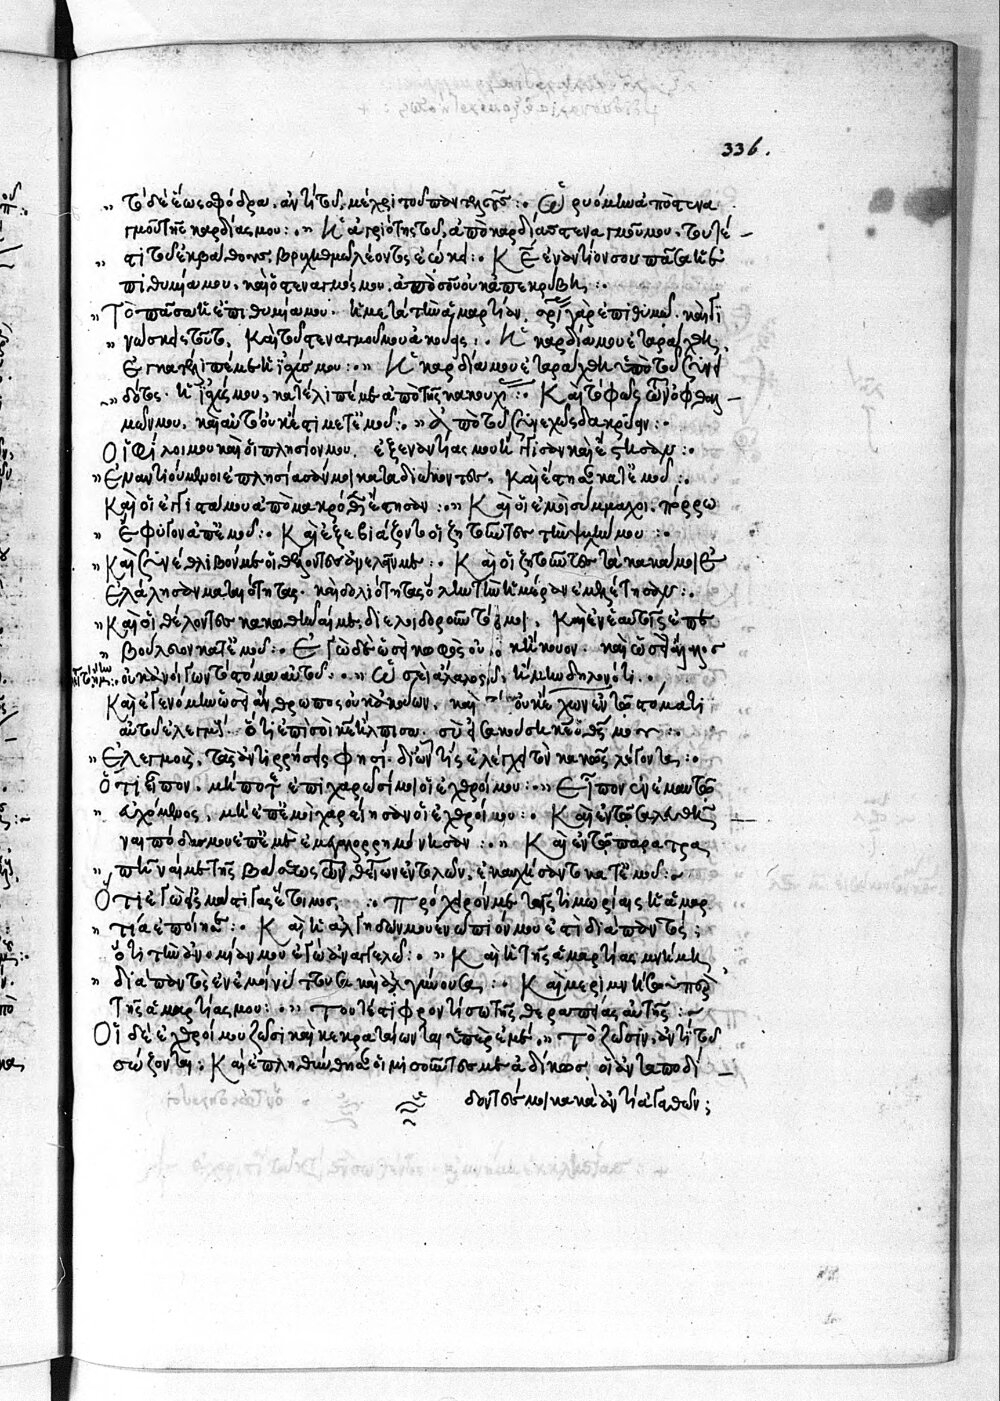 336.
τὸ δὲ ἕως σφόδρα, ἀντὶ τοῦ, μέχρι τοῦ παντελοῦς :· Ὠρυόμην ἀπὸ στενα
γμοῦ τῆς καρδίας μου :· " Ἡ ἀγριότης τοῦ, ἀπὸ καρδίας στεναγμοῦ μου· τουτέ
στι τοῦ ἐκβαθους βρυχηθμῷ λέοντος ἐῴκει :· Κύριε ἐναντίον σου πᾶσα ἡ ἐ
πιθυμία μου, καὶ ὁ στεναγμός μου, ἀπὸ σοῦ οὐκ ἀπεκρύβη :·
" Τὸ πᾶσα ἡ ἐπιθυμία μου· ἡ μετὰ τὴν ἁμαρτίαν. γὰρ ἐπιθυμῶ· καὶ
" γινώσκεις τοῦτο. Καὶ τοῦ στεναγμοῦ μου ἀκούεις :· Ἡ καρδία μου ἐταράχθη,
ἐγκατέλιπέ με ἡ ἰσχύς μου :· " Ἡ καρδία μου ἐταράχθη ὑπὸ τοῦ συνει
" δότος· ἡ ἰσχύς μου, κατέλιπέ με ἀπὸ τῆς κακουχίας :· Καὶ τὸ φῶς τῶν ὀφθαλ
μῶν μου, καὶ αὐτὸ οὐκ ἔστι μετ' ἐμοῦ :· " Ἀπὸ τοῦ συνεχῶς δακρύειν :·
Οἱ φίλοι μου καὶ οἱ πλησίον μου, ἐξεναντίας μου ἤγγισαν καὶ ἔστησαν :·
" Ἐναντιούμενοι ἐπλησίασάν μοι καταδιώκοντες, καὶ ἔστησαν κατ' ἐμοῦ :·
Καὶ οἱ ἔγγιστά μου ἀπὸ μακρόθεν ἔστησαν :· " Καὶ οἱ ἐμοὶ σύμμαχοι, πόρρω
" ἔφυγον ἀπ' ἐμοῦ :· Καὶ ἐξεβιάζοντο οἱ ζητοῦντες τὴν ψυχήν μου :·
" Καὶ συνέθλιβόν με οἱ θέλοντες ἀνελεῖν με :· Καὶ οἱ ζητοῦντες τὰ κακά μοι ἐ
ἐλάλησαν ματαιότητας· καὶ δολιότητας ὅλην τὴν ἡμέραν ἐμελέτησαν :·
" Καὶ οἱ θέλοντες κακωθῆναί με, διελοιδοροῦντό μοι, καὶ ἐν ἑαυτοῖς ἐπε
" βούλευον κατ' ἐμοῦ :· Ἐγὼ δὲ ὡσεὶ κωφὸς οὐκ ἤκουον· καὶ ὡσεὶ ἄλαλος
οὐκ ἀνοίγων τὸ στόμα αὐτοῦ :· " Ὡσεὶ ἄλαλος, ἤμην δηλονότι :·
Καὶ ἐγενόμην ὡσεὶ ἄνθρωπος οὐκ ἀκούων, καὶ οὐκ ἔχων ἐν τῷ στόματι
αὐτοῦ ἐλεγμούς· ὅτι ἐπὶ σοὶ κύριε ἤλπισα· σὺ εἰσακούσῃ κύριε ὁ θεός μου :·
" Ἐλεγμούς, τὰς ἀντιρρήσεις φησί· δι' ὧν τις ἐλέγχει τὸν κακῶς λέγοντα :·
Ὅτι εἶπον, μήποτε ἐπιχαρῶσί μοι οἱ ἐχθροί μου :· " Εἶπον ἐν ἐμαυτῷ
" εὐχόμενος, μὴ ἐπ' ἐμοὶ χαρείησαν οἱ ἐχθροί μου :· Καὶ ἐν τῷ σαλευθῆ
ναι πόδας μου ἐπ' ἐμὲ ἐμεγαλορρημόνησαν :· " Καὶ ἐν τῷ παρατρα
" πῆναί με τῆς βάσεως τῶν θείων ἐντολῶν, ἐκαυχήσαντο κατ' ἐμοῦ :~
Ὅτι ἐγὼ εἰς μάστιγας ἕτοιμος :· Πρόχειρόν με ταῖς τιμωρίαις ἡ ἁμαρ
" τία ἐποίησεν :· Καὶ ἡ ἀλγηδών μου ἐνώπιόν μου ἐστὶ διαπαντός ;
ὅτι τὴν ἀνομίαν μου ἐγὼ ἀναγγελῶ :· " Καὶ ἡ τῆς ἁμαρτίας μνήμη,
" διαπαντὸς ἐν ἐμοὶ κεντοῦσα καὶ ἀλγύνουσα :· Καὶ μεριμνήσω ὑπὲρ
τῆς ἁμαρτίας μου :· " Τουτέστι φροντίσω τῆς θεραπείας αὐτῆς :~
Οἱ δὲ ἐχθροί μου ζῶσι καὶ κεκραταίωνται ὑπὲρ ἐμέ :· " Τὸ ζῶσιν, ἀντὶ τοῦ
σώζονται : Καὶ ἐπληθύνθησαν οἱ μισοῦντές με ἀδίκως, οἱ ἀνταποδι
δόντες μοι κακὰ ἀντὶ ἀγαθῶν ;